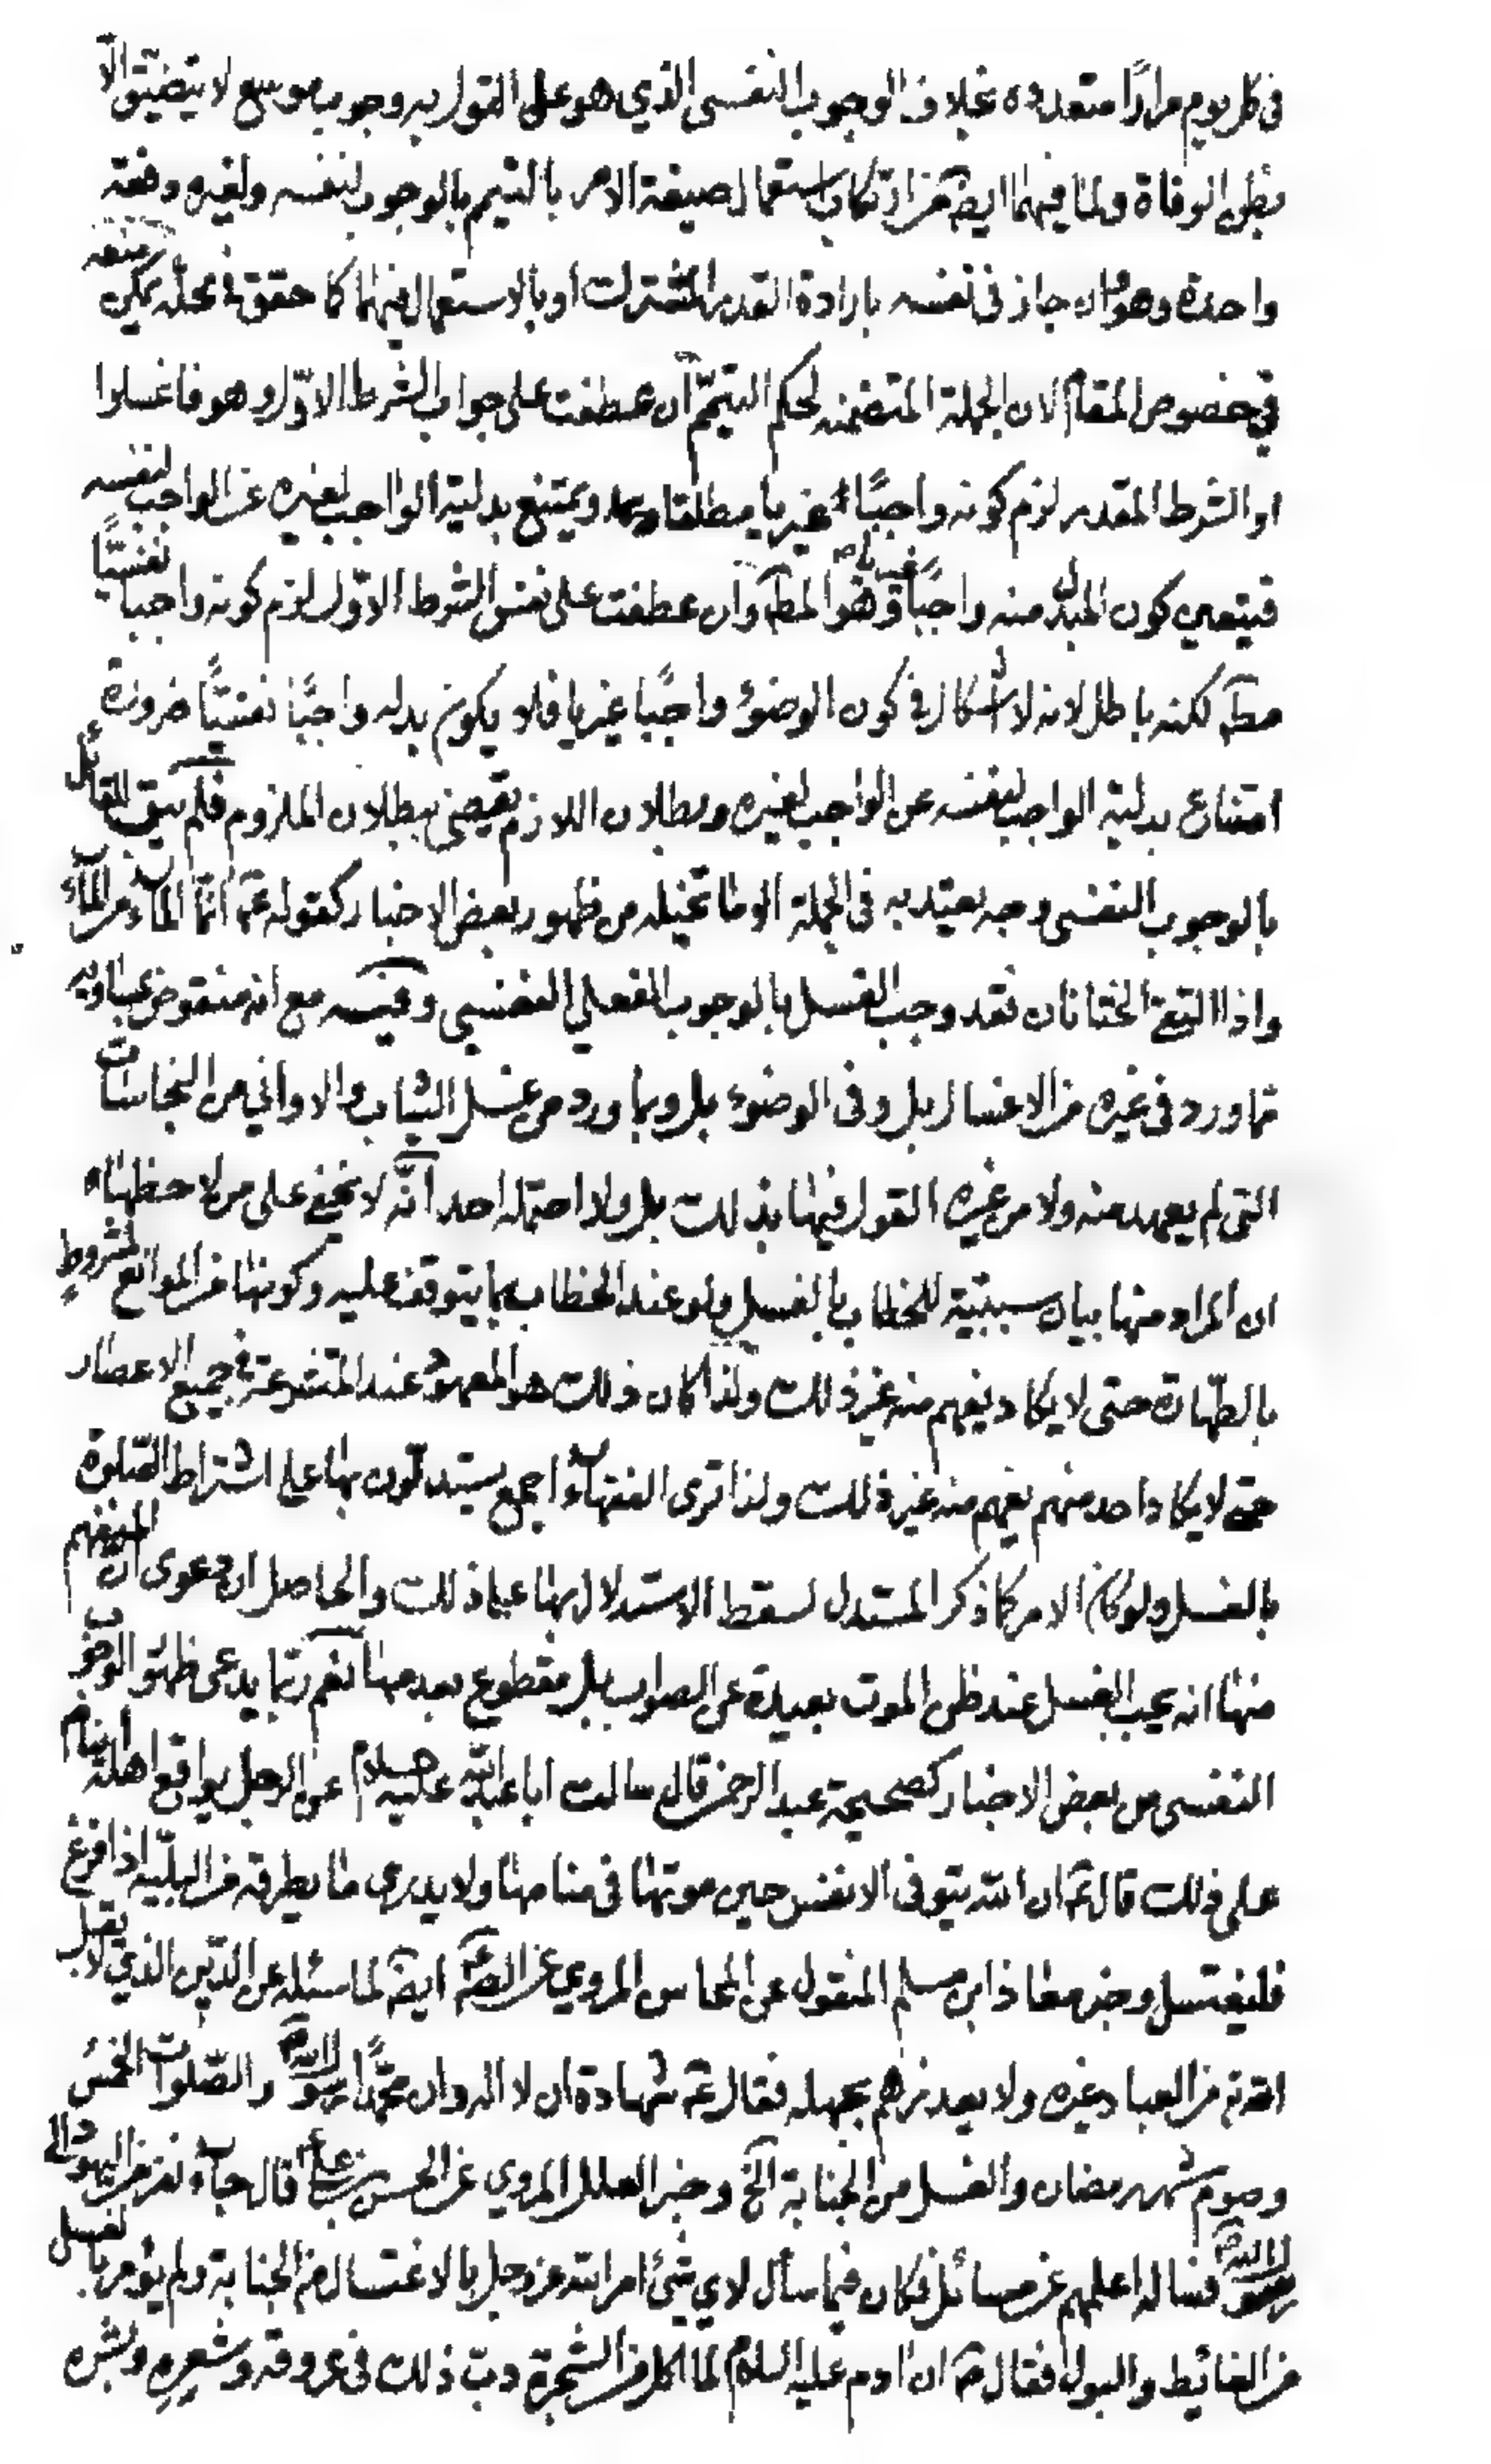 في كل يوم مرارًا متعدده بخلاف الوجوب النفسى الذي هو على القول به وجوب موسع لا يتضيق الا
بظن الوفاة ولما فيهما ايضا من ارتكاب استعمال صيغة الامر بالتيمم بالوجوب لنفسه ولغيره دفعة
واحدة وهو وان جاز في نفسه بارادة القدر المشترك او بالاستعمال فيهما كما حقق في محله يمكن منعه
في خصوص المقام لان الجملة المتضمنه لحكم التيمّم ان عطفت على جواب الشرط الاوّل وهو فاغسلوا
او الشرط المقدر لزم كونه واجبًا غيريا مطلقا ويمتنع بدلية الواجب لغيره عن الواجب لنفسه
فيتعين كون المبدل منه واجبًا غيريا وهو المطـ وان عطفت على نفس الشرط الاوّل لزم كونه واجبا نفسيًّا
مطـ لكنه باطل لانه لا اشكال في كون الوضوء واجبًا غيريا فلا يكون بدله واجبًا نفسيًّا ضرورة
امتناع بدلية الواجب لنفسه عن الواجب لغيره وبطلان اللازم يقضي ببطلان الملزوم فلم يبق للقائل
بالوجوب النفسى وجه يعتد به فى الجملة الا ما تخيله من ظهور بعض الاخبار كقوله عـ انّما الماء من الماء
واذا التقى الختانان فقد وجب الغسل بالوجوب الفعلي النفسي وفيـه مع انه منقوض بما ورد
مما ورد في غيره من الاغسال بل وفى الوضوء بل وبما ورد من غسل الثياب والاواني من النجاسات
التى لم يعهد منه ولا من غيره القول فيها بذلك بل ولا احتمله احد انّه لا يخفى على من لاحظها
ان المراد منها بيان سببية للخطاب بالغسل ولو عند الخطاب بما يتوقف عليه وكونها من الموانع لمشروط
بالطهارة حتى لا يكاد يفهم منه غير ذلك ولذا كان ذلك هو المعهود عند المتشرعة في جميع الاعصار
حتى لا يكاد احد منهم يفهم منه غير ذلك ولذا ترى الفقهاء اجمع يستدلّون بها على اشتراط الصّلوة
بالغسل ولو كان الامر كما ذكر المستدل لسقط الاستدلال بها على ذلك والحاصل ان دعوى ان المنفهم
منها انه يجب الغسل عند ظن الموت بعيدة عن الصواب بل مقطوع بعدمها نعم ربّما يدعى ظهور الوجوب
النفسى من بعض الاخبار كصحيحة عبد الرحمن قال سالت ابا عبد الله عليه السلام عن الرجل يواقع اهله اينام
على ذلك قال عـ ان الله يتوفى الانفس حين موتها فى منامها ولا يدرى ما يطرقه من البليّه اذا فرغ
فليغتسل وخبر معاذ ابن مسلم المنقول عن المحاسن المروي عن الصـ ايضـ لما سئله عن الدّين الذي لا يقبل
الله من العباد غيره ولا يعذرهم بجهله فقال عـ شهادة ان لا اله وان محمّدًا رسول الله والصّلوات الخمس
وصوم شهر رمضان والغسل من الجنابة الخ وخبر العلل المروي عن الحسن بن علي قال جاء نفر من اليهود الى
رسول الله فساله اعلمهم عن مسائل فكان فيما سأل لاي شئ امر الله عز وجل بالاغتسال من الجنابة ولم يؤمر بالغسل
من الغائط والبول فقال صـ ان ادم عليه السلام لما اكل من الشجرة دبّ ذلك فى عروقه وشعره وبشره